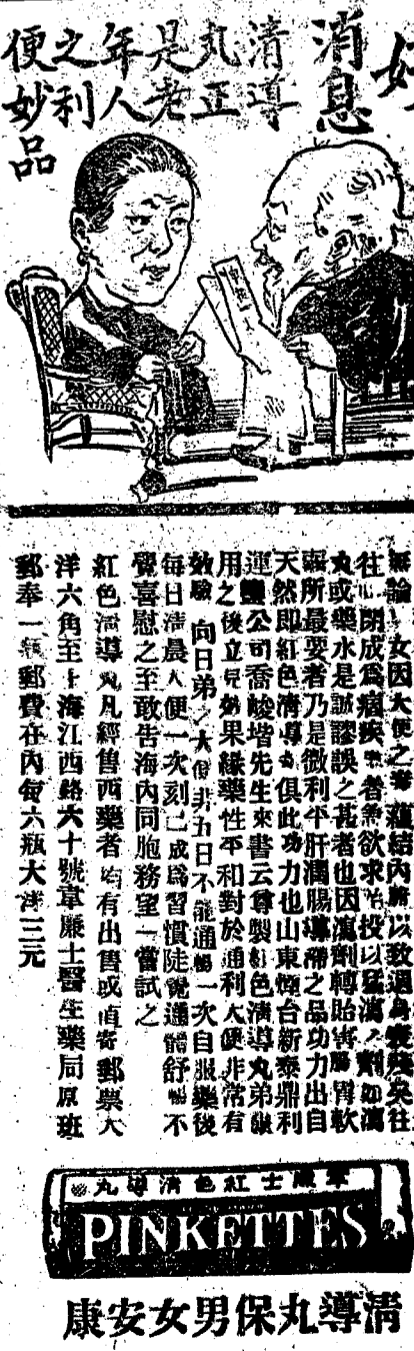 好
消息
清導
丸正
是老
年人
之利
便妙
品
無論 女因大便之 蘊結內臟以致遍身 殘矣往
往 閉成爲痼疾 者 欲求 投以猛瀉 劑如瀉
丸或藥水是誠謬誤之甚者也因瀉劑轉貽害腸胃軟
弱所最要者乃是微利平肝潤腸導滯之品功力出自
天然即紅色清導丸俱此功力也山東煙台新泰鼎利
運鹽公司喬峻堦先生來書云尊製紅色清導丸弟服
用之後立見奶果緣藥性平和對於通利大便非常有
效驗 向日弟之大便非五日不能通暢一次自服藥後
每日清晨大便一次刻已成爲習慣陡覺通體舒暢不
覺喜慰之至敢告海內同胞務望一嘗試之
紅色清導丸凡經售西藥者均有出售或直寄郵票大
洋六角至上海江西路六十號韋廉士醫生藥局原班
郵奉一瓶郵費在內每六瓶大洋三元
韋廉士紅色清導丸
PINKETTES
清導丸保男女安康